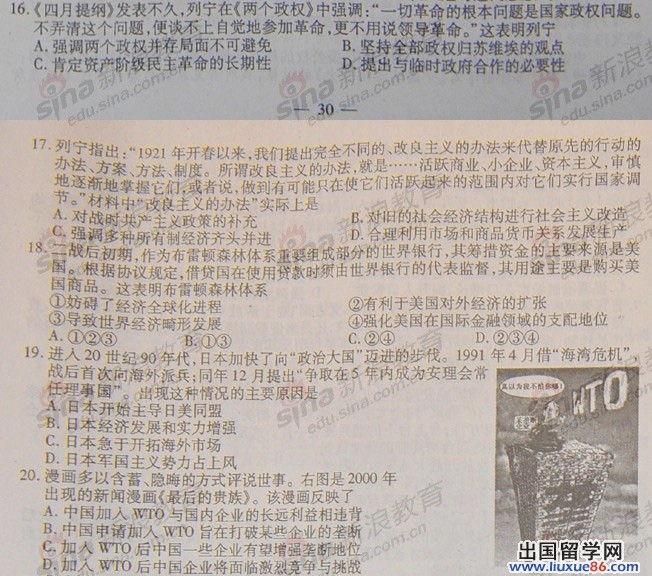 16.《四月提纲》发表不久，列宁在《两个政权》中强调：“一切革命的根本问题是国家政权问题。
不弄清这个问题，便谈不上自觉地参加革命，更不用说领导革命。”这表明列宁
A. 强调两个政权并存局面不可避免 B. 坚持全部政权归苏维埃的观点
C. 肯定资产阶级民主革命的长期性 D. 提出与临时政府合作的必要性
— 30 —
17. 列宁指出：“1921 年开春以来，我们提出完全不同的、改良主义的办法来代替原先的行动的
办法、方案、方法、制度。所谓改良主义的办法，就是……活跃商业、小企业、资本主义，审慎
地逐渐地掌握它们，或者说，做到有可能只在使它们活跃起来的范围内对它们实行国家调
节。”材料中“改良主义的办法”实际上是
A. 对战时共产主义政策的补充 B. 对旧的社会经济结构进行社会主义改造
C. 强调多种所有制经济齐头并进 D. 合理利用市场和商品货币关系发展生产
18. 二战后初期，作为布雷顿森林体系重要组成部分的世界银行，其筹措资金的主要来源是美
国。根据协议规定，借贷国在使用贷款时须由世界银行的代表监督，其用途主要是购买美
国商品。这表明布雷顿森林体系
①妨碍了经济全球化进程 ②有利于美国对外经济的扩张
③导致世界经济畸形发展 ④强化美国在国际金融领域的支配地位
A. ①②③ B. ①③ C. ②④ D. ②③④
19. 进入 20 世纪 90 年代，日本加快了向“政治大国”迈进的步伐。1991 年 4 月借“海湾危机”，
战后首次向海外派兵；同年 12 月提出“争取在 5 年内成为安理会常
任理事国”。出现这种情况的主要原因是
A. 日本开始主导日美同盟
B. 日本经济发展和实力增强
C. 日本急于开拓海外市场
D. 日本军国主义势力占上风
20. 漫画多以含蓄、隐晦的方式评说世事。右图是 2000 年
出现的新闻漫画《最后的贵族》。该漫画反映了
A. 中国加入 WTO 与国内企业的长远利益相违背
B. 中国申请加入 WTO 旨在打破某些企业的垄断
C. 加入 WTO 后中国一些企业有望增强垄断地位
D. 加入 WTO 后中国企业将面临激烈竞争与挑战
WTO
sina 新浪教育
edu.sina.com.cn
出国留学网
www.liuxue86.com